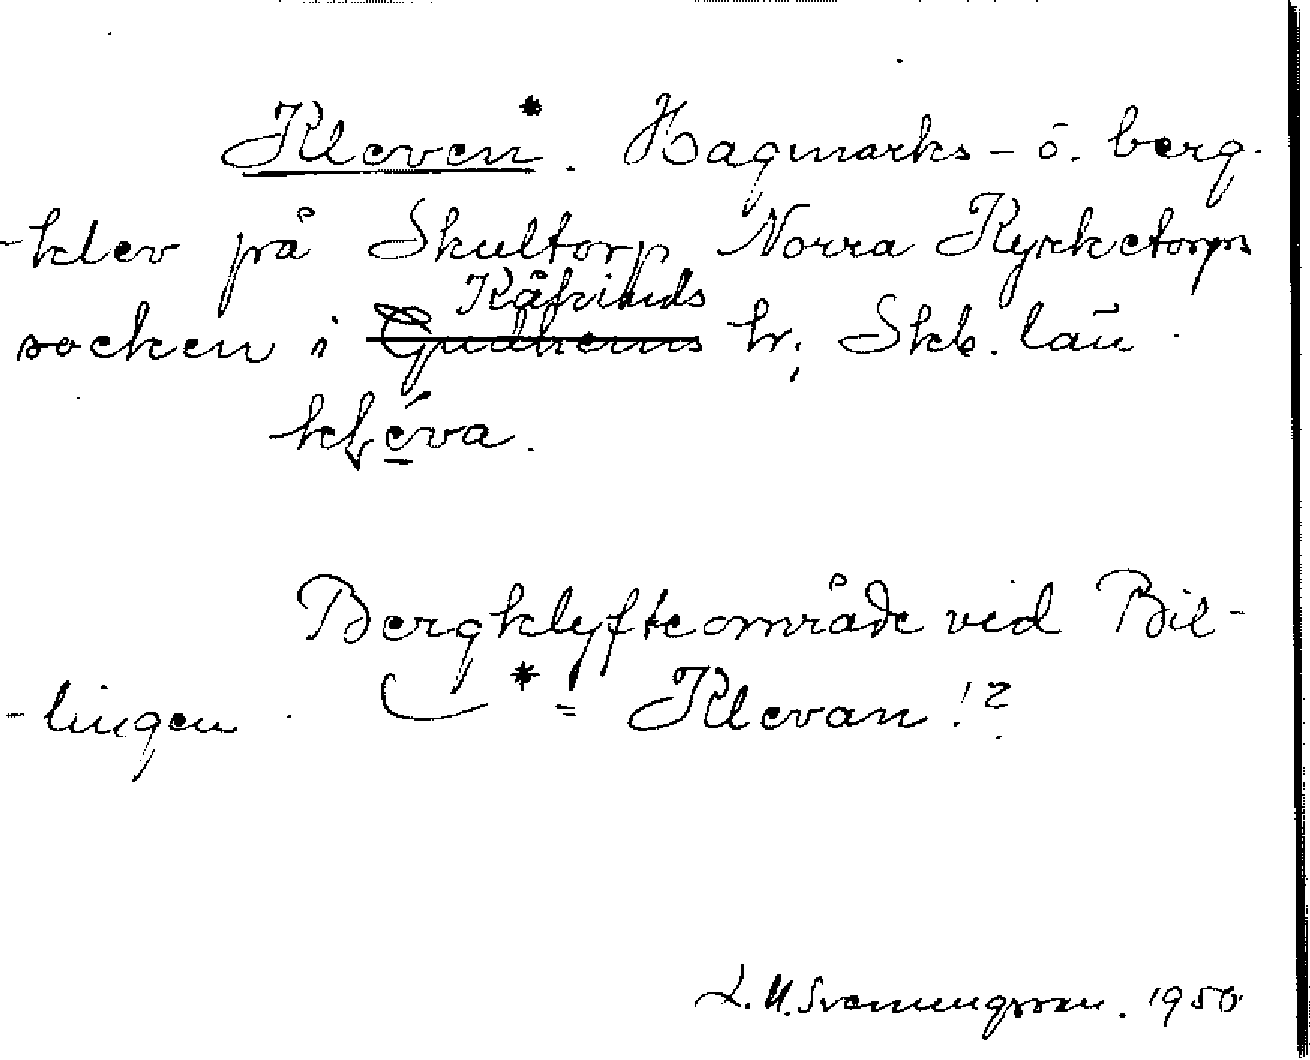 Kleven*. Hagmarks- o. berg-
-klev på Skultorp Norra Kyrketorps
Kåkinds
socken i Gudhems hr; Skb. län.
kléva.
Bergklyfteområde vid Bil-
-lingen. * = Klevan!?
L. M. Svenungsson. 1950